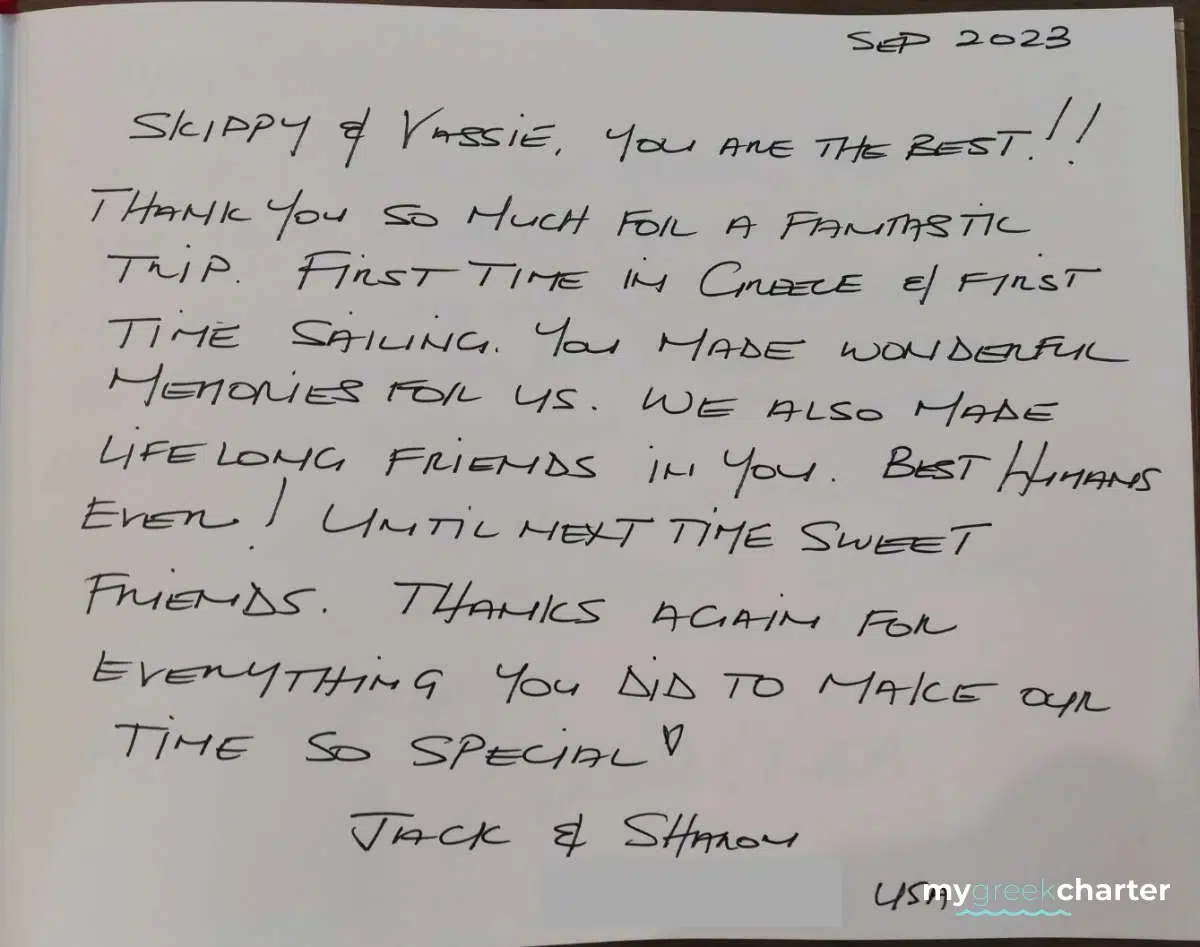 SEP 2023
SKIPPY & VASSIE, YOU ARE THE BEST!!
THANK YOU SO MUCH FOR A FANTASTIC
TRIP. FIRST TIME IN GREECE & FIRST
TIME SAILING. YOU MADE WONDERFUL
MEMORIES FOR US. WE ALSO MADE
LIFELONG FRIENDS IN YOU. BEST HUMANS
EVER! UNTIL NEXT TIME SWEET
FRIENDS. THANKS AGAIN FOR
EVERYTHING YOU DID TO MAKE OUR
TIME SO SPECIAL ♡
JACK & SHARON
USA
mygreekcharter